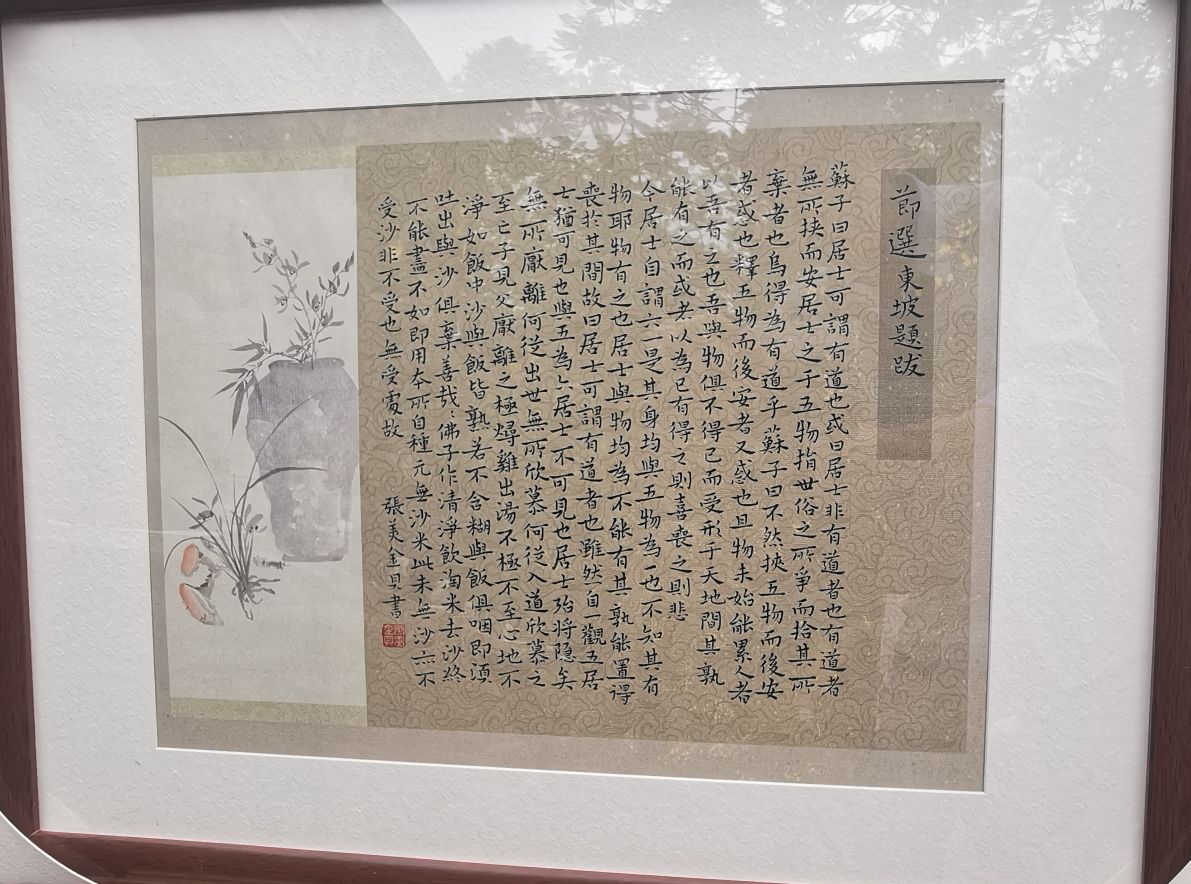 節選東坡題跋
蘇子曰居士可謂有道也或曰居士非有道者也有道者
無所挾而安居士之于五物捐世俗之所爭而拾其所
棄者也烏得為有道乎蘇子曰不然挾五物而後安
者惑也釋五物而後安者又惑也且物未始能累人者
以吾有之也吾與物俱不得已而受形于天地間其孰
能有之而或者以為己有得之則喜喪之則悲
今居士自謂六一是其身均與五物為一也不知其有
物耶物有之也居士與物均為不能有其孰能置得
喪於其間故曰居士可謂有道者也雖然自一觀五居
士猶可見也與五為六居士不可見也居士殆將隱矣
無所厭離何從出世無所欣慕何從入道欣慕之
至亡子見父厭離之極燖雞出湯不極不至心地不
淨如飯中沙與飯皆熟若不含糊與飯俱咽即須
吐出與沙俱棄善哉善哉佛子作清淨飲淘米去沙終
不能盡不如即用本所自種元無沙米此米無沙亦不
受沙非不受也無受處故
張美金貝書